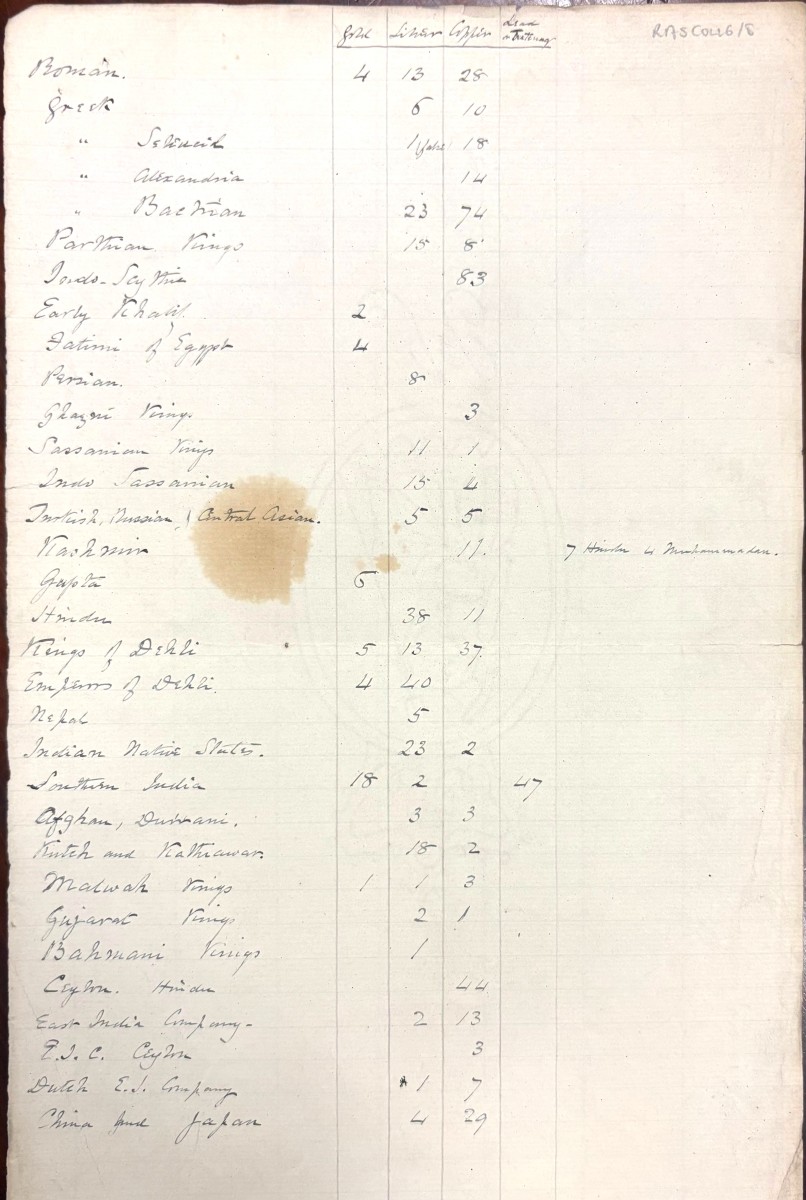 Gold Silver Copper Lead
RAS COLL6/8
Roman. 4 13 28
Greek 6 10
" Seleucid 1 (false) 18
" Alexandria 14
" Bactrian 23 74
Parthian Kings 15 8
Indo-Scythic 83
Early Khalif. 2
Fatimi of Egypt 4
Persian. 8
Ghazni Kings 3
Sassanian Kings 11 1
Indo Sassanian 15 4
Turkish, Russian, Central Asian. 5 5
Kashmir 11. 7 Hindu 4 Muhammadan.
Gupta 6
Hindu 38 11
Kings of Dehli 5 13 37.
Emperors of Dehli. 4 40
Nepal 5
Indian Native States. 23 2
Southern India 18 2 47
Afghan, Durrani. 3 3
Kutch and Kathiawar. 18 2
Malwah Kings 1 1 3
Gujarat Kings 2 1
Bahmani Kings 1
Ceylon. Hindu 44
East India Company- 2 13
E.I.C. Ceylon 3
Dutch E.I. Company 1 7
China and Japan 4 29